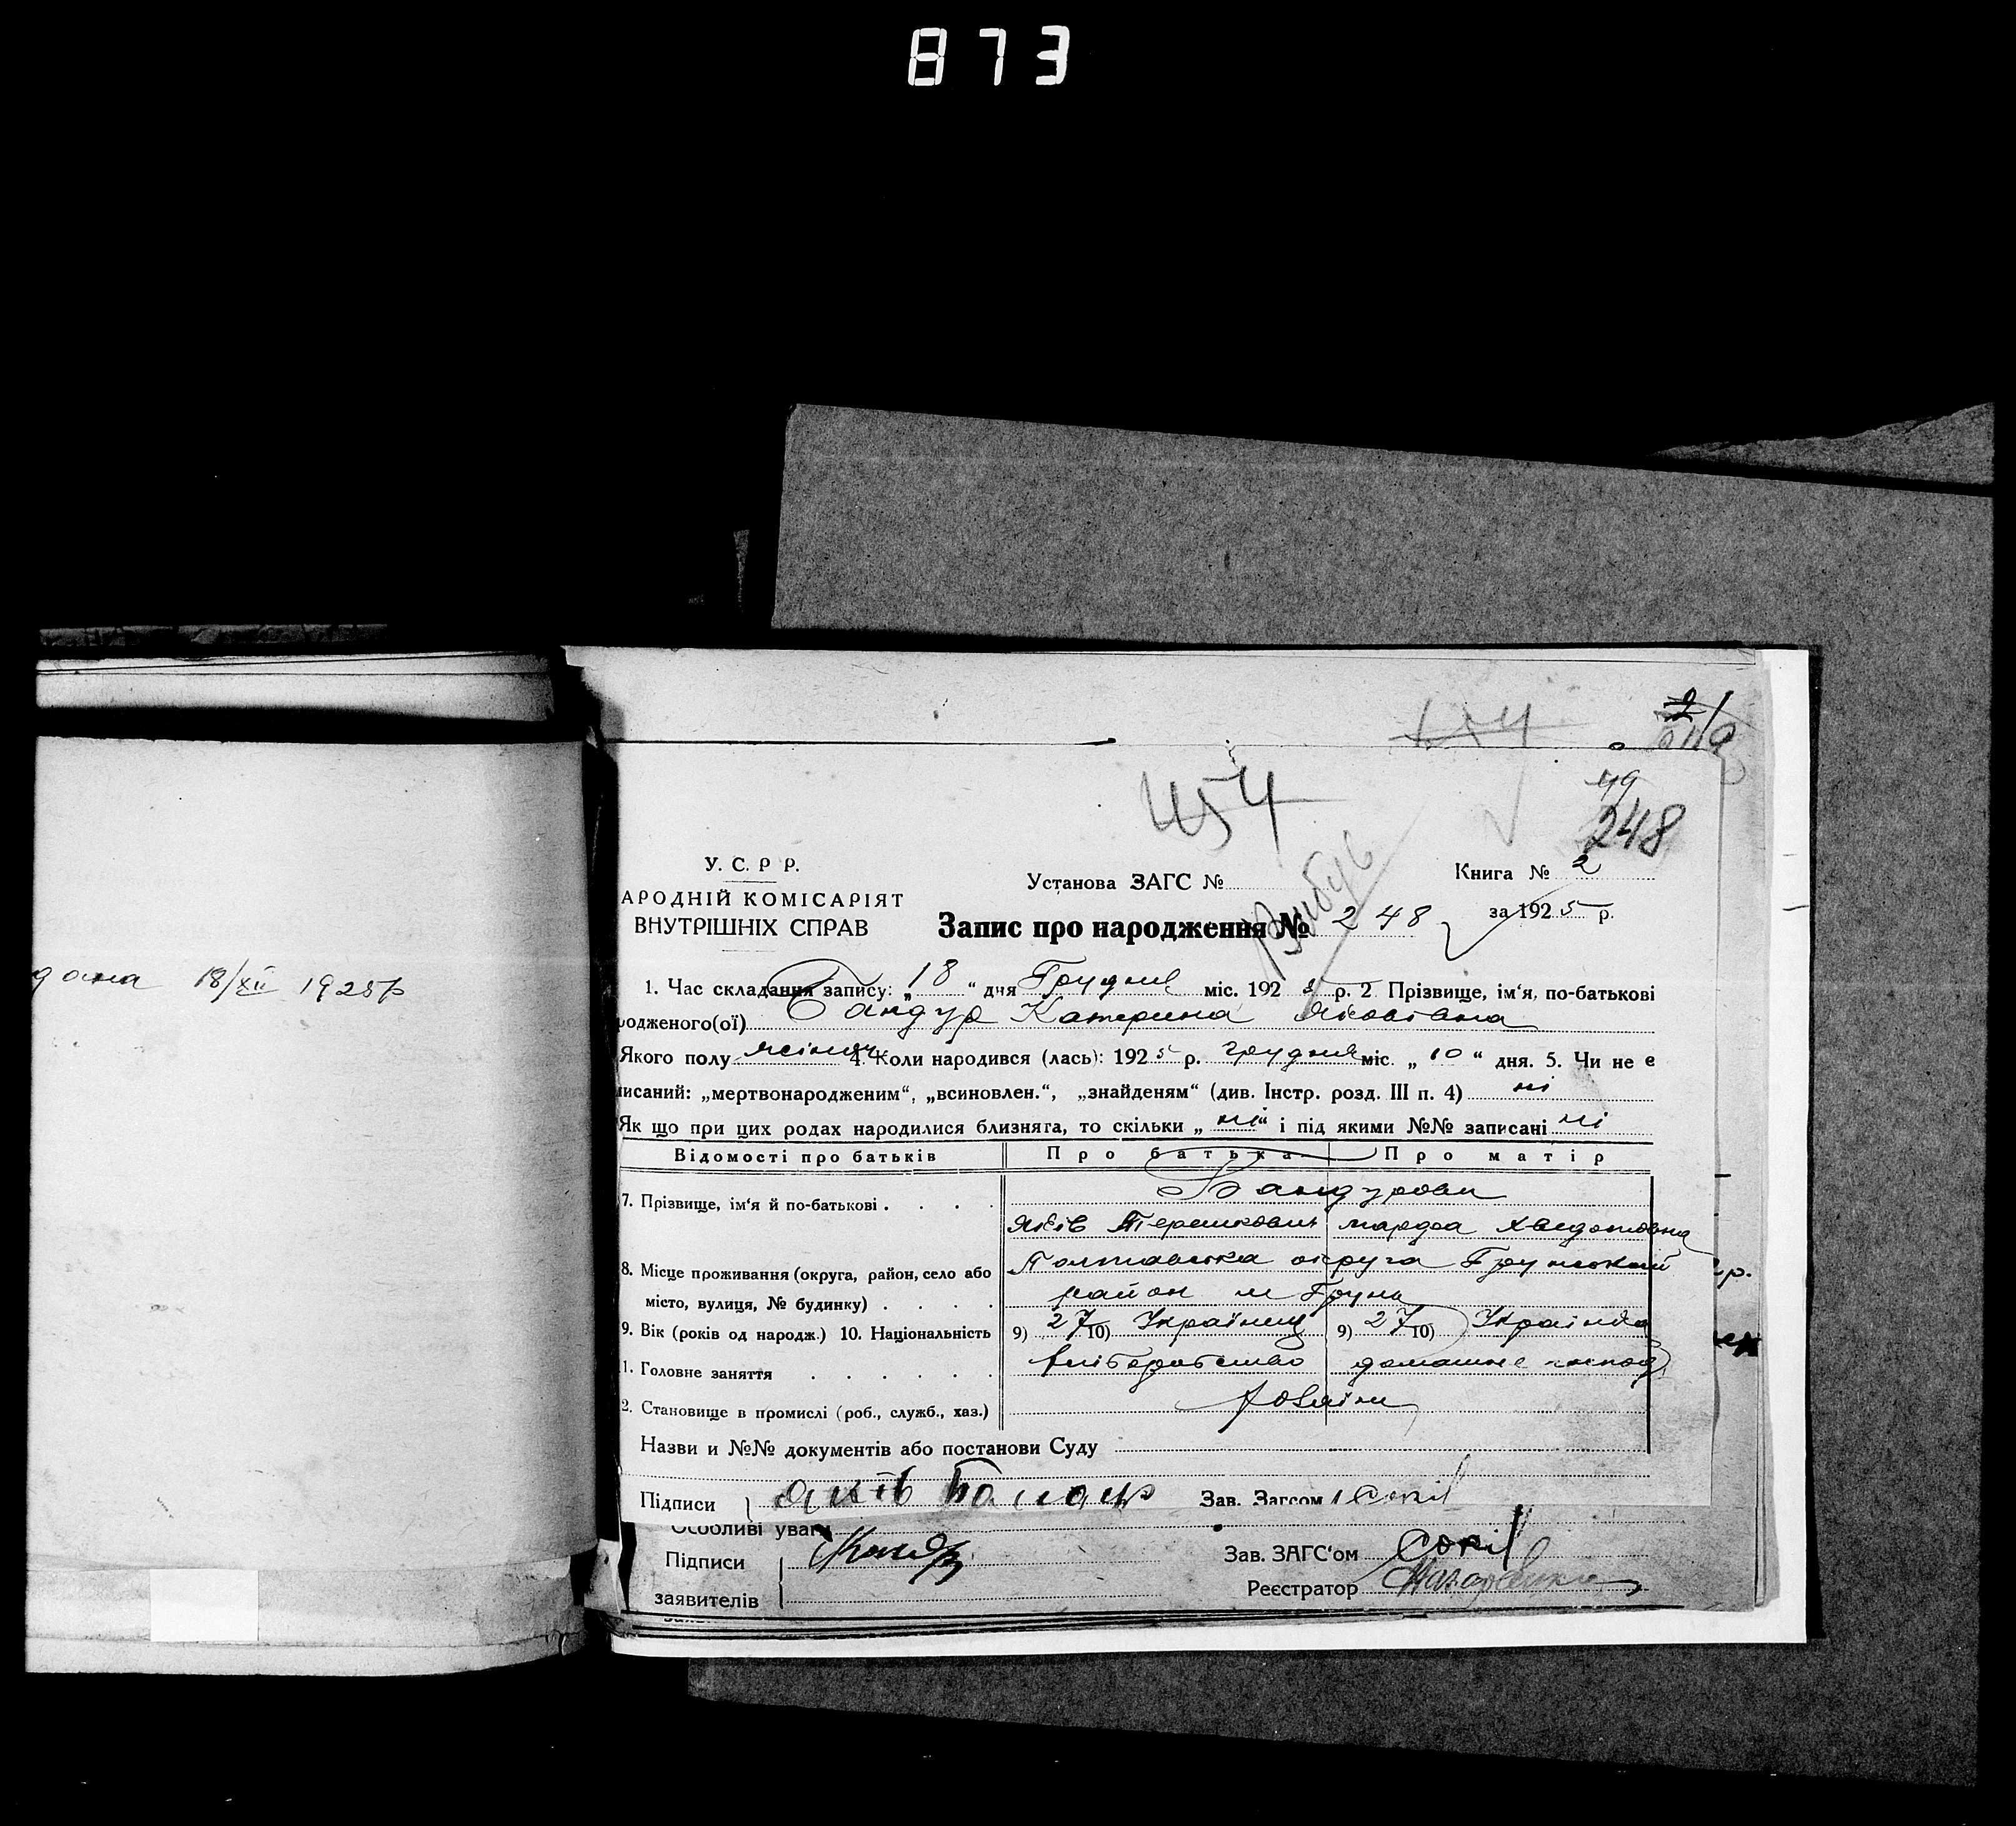 873
дана 18/XII 1925р
454
2
49
248
454
У. С. Р Р.
АРОДНІЙ КОМІСАРІЯТ
ВНУТРІШНІХ СПРАВ
Установа ЗАГС №
Книга № 2
за 1925 р.
Запис про народження № 248
1. Час складання запису: „18“ дня Грудня міс. 1925 р. 2 Прізвище, ім'я, по-батькові
одженого(ої) Бандур Катерина Яковівна
Якого полу жіноч. 4. Коли народився (лась): 1925 р. грудня міс. „10“ дня. 5. Чи не є
писаний: „мертвонародженим“, „всиновлен.“, „знайденям“ (див. Інстр. розд. III п. 4) ні
Як що при цих родах народилися близняга, то скільки „ні“ і під якими №№ записані ні
Відомості про батьків Про батька Про матір
7. Прізвище, ім'я й по-батькові . . . . Бандурови
Яків Терешкович Марфа Хведотовна
8. Місце проживання (округа, район, село або Полтавська округа Грунський
місто, вулиця, № будинку) . . . . район м Грунь
9. Вік (років од народж.) 10. Національність 9) 27 10) Українець 9) 27 10) Українка
1. Головне заняття . . . . . . хліборобство домашнє господ
2. Становище в промислі (роб., служб., хаз.) хозяїни
Назви и №№ документів або постанови Суду
Підписи Яків Зав. Загсом Сокіл
Особливі уваги
Підписи
заявителів
Зав. ЗАГС'ом Сокіл
Реєстратор